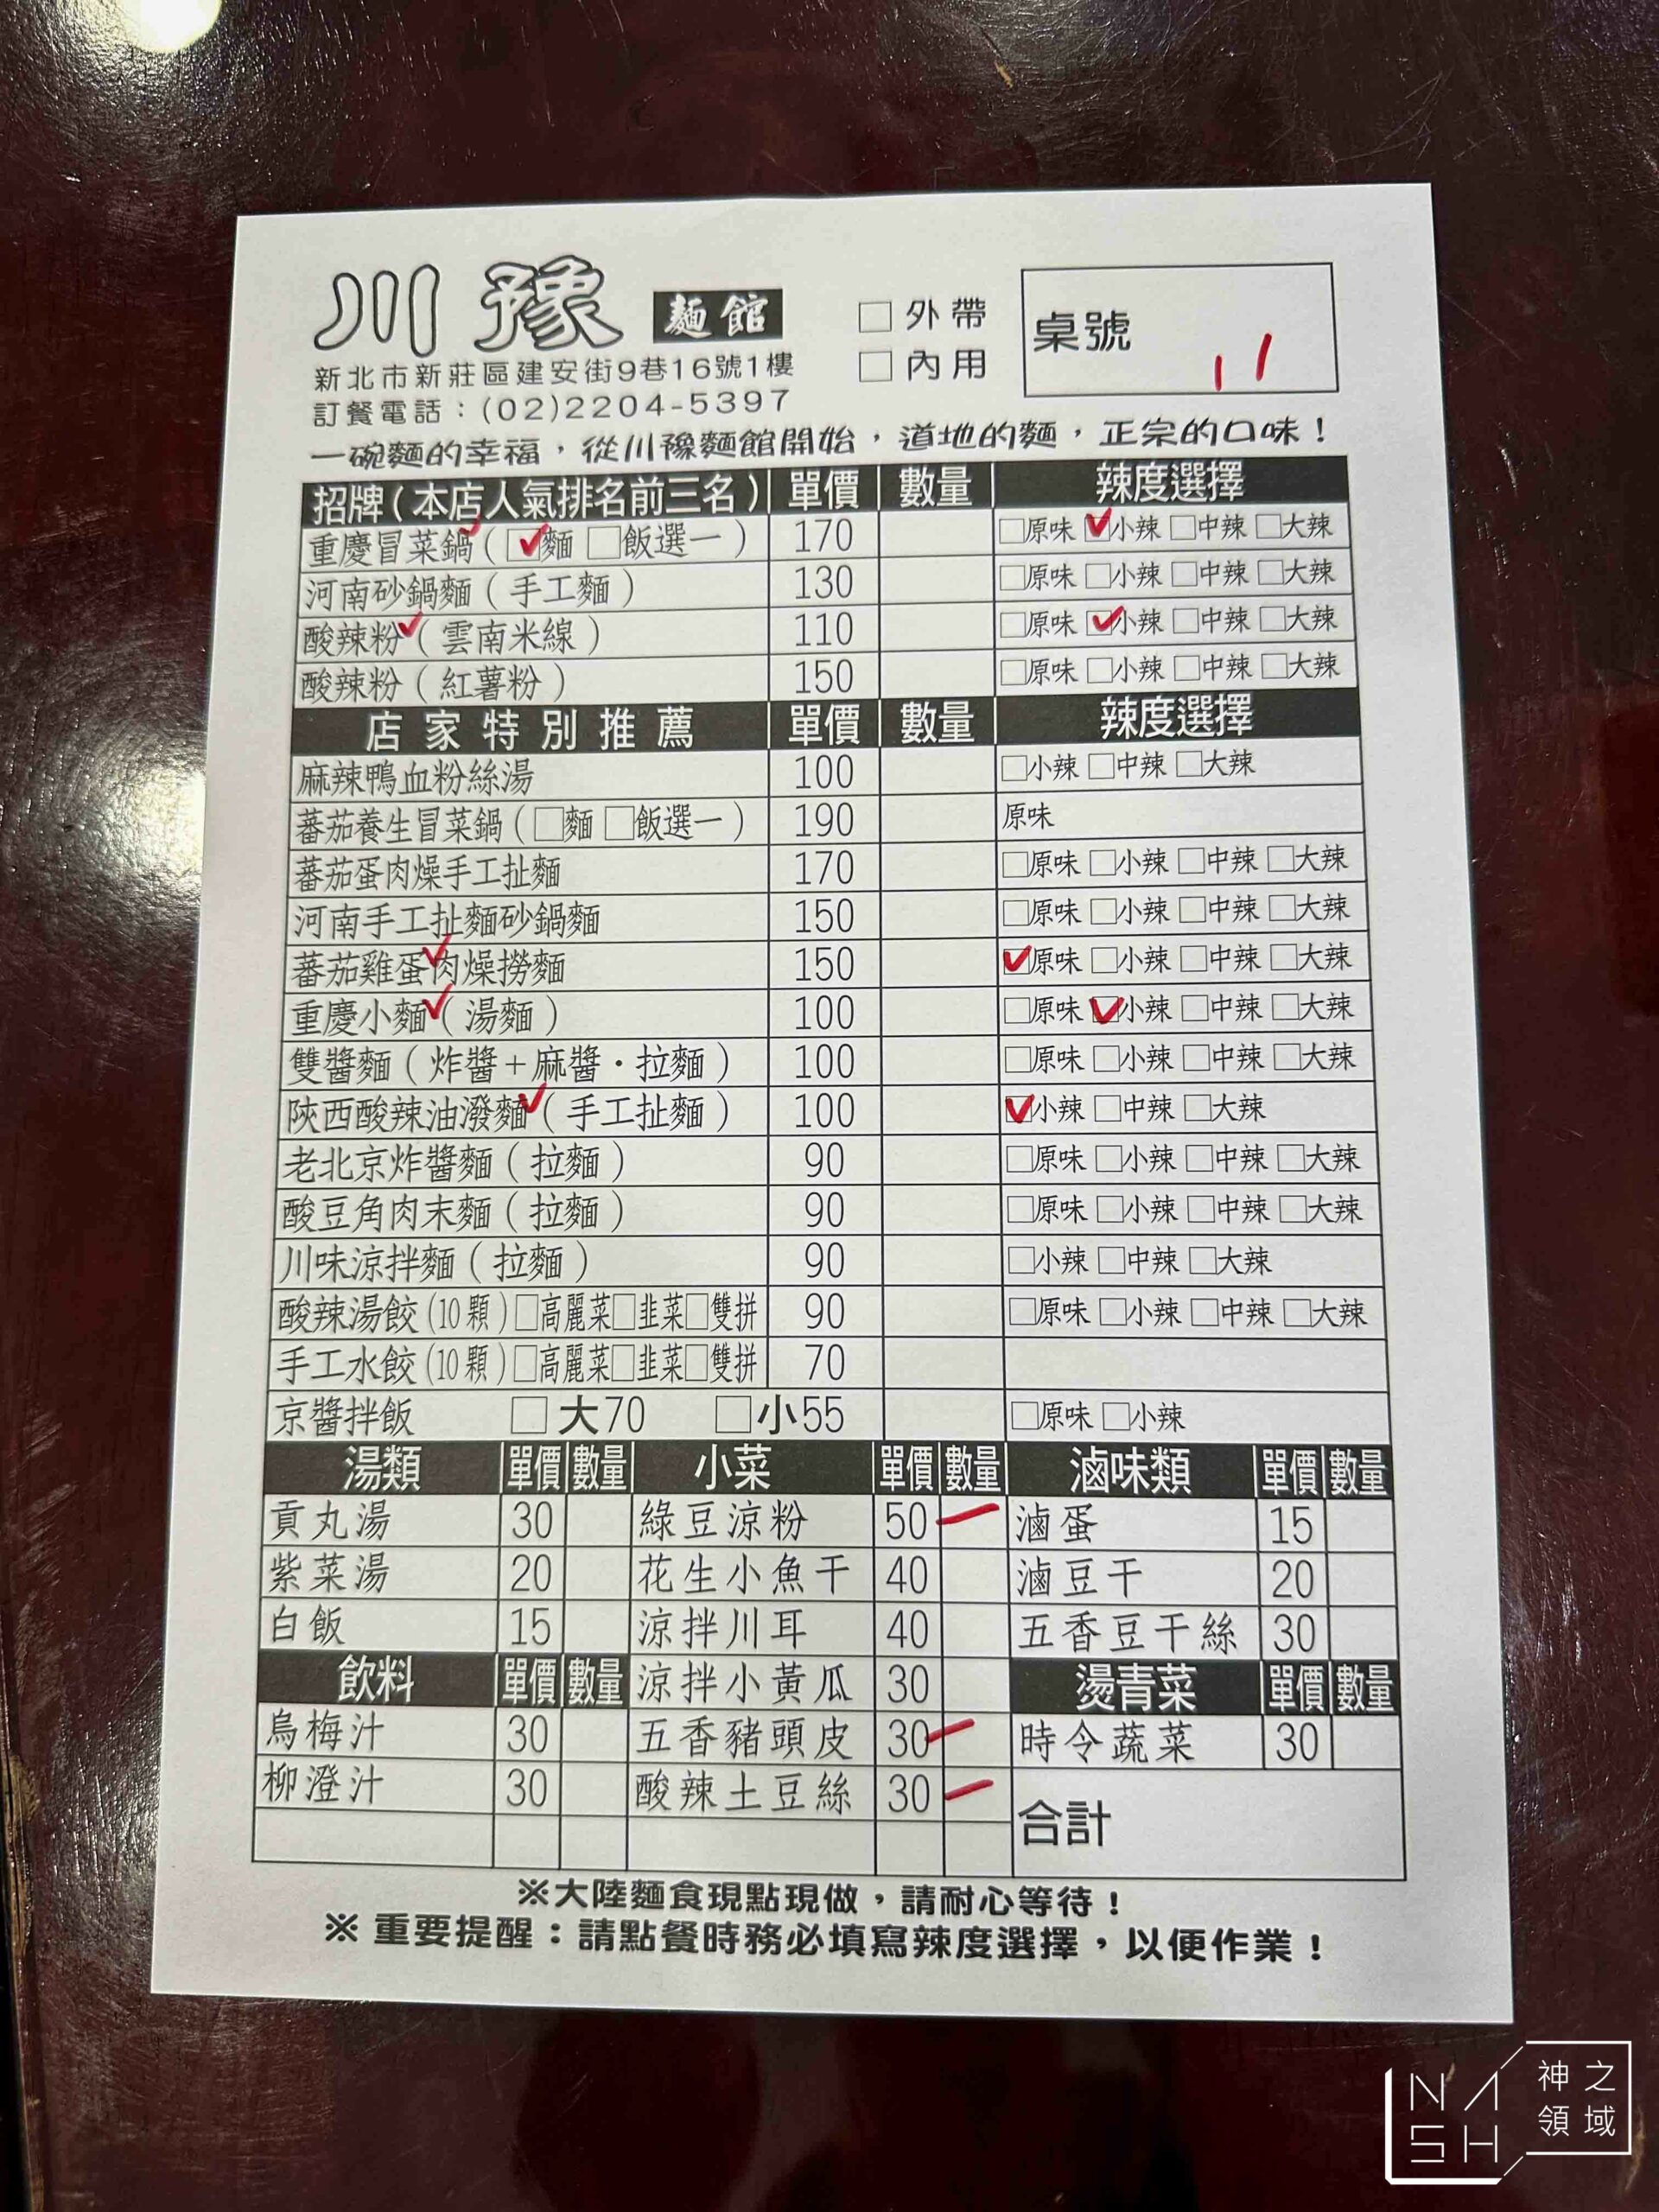 川豫 麵館
□外帶
□內用
桌號 11
新北市新莊區建安街9巷16號1樓
訂餐電話：(02)2204-5397
一碗麵的幸福，從川豫麵館開始，道地的麵，正宗的口味！
招牌(本店人氣排名前三名) 單價 數量 辣度選擇
重慶冒菜鍋(☑麵 □飯選一) 170 □原味 ☑小辣 □中辣 □大辣
河南砂鍋麵(手工麵) 130 □原味 □小辣 □中辣 □大辣
酸辣粉✓(雲南米線) 110 □原味 ☑小辣 □中辣 □大辣
酸辣粉(紅薯粉) 150 □原味 □小辣 □中辣 □大辣
店家特別推薦 單價 數量 辣度選擇
麻辣鴨血粉絲湯 100 □小辣 □中辣 □大辣
蕃茄養生冒菜鍋(□麵 □飯選一) 190 原味
蕃茄蛋肉燥手工扯麵 170 □原味 □小辣 □中辣 □大辣
河南手工扯麵砂鍋麵 150 □原味 □小辣 □中辣 □大辣
蕃茄雞蛋肉燥撈麵 150 ☑原味 □小辣 □中辣 □大辣
重慶小麵✓(湯麵) 100 □原味 ☑小辣 □中辣 □大辣
雙醬麵(炸醬+麻醬·拉麵) 100 □原味 □小辣 □中辣 □大辣
陝西酸辣油潑麵✓(手工扯麵) 100 ☑小辣 □中辣 □大辣
老北京炸醬麵(拉麵) 90 □原味 □小辣 □中辣 □大辣
酸豆角肉末麵(拉麵) 90 □原味 □小辣 □中辣 □大辣
川味涼拌麵(拉麵) 90 □小辣 □中辣 □大辣
酸辣湯餃(10顆)□高麗菜□韭菜□雙拼 90 □原味 □小辣 □中辣 □大辣
手工水餃(10顆)□高麗菜□韭菜□雙拼 70
京醬拌飯 □大70 □小55 □原味 □小辣
湯類 單價 數量 小菜 單價 數量 滷味類 單價 數量
貢丸湯 30 綠豆涼粉 50 一 滷蛋 15
紫菜湯 20 花生小魚干 40 滷豆干 20
白飯 15 涼拌川耳 40 五香豆干絲 30
飲料 單價 數量 涼拌小黃瓜 30 燙青菜 單價 數量
烏梅汁 30 五香豬頭皮 30 一 時令蔬菜 30
柳澄汁 30 酸辣土豆絲 30 一
合計
※大陸麵食現點現做，請耐心等待！
※重要提醒：請點餐時務必填寫辣度選擇，以便作業！
NASH 神之領域